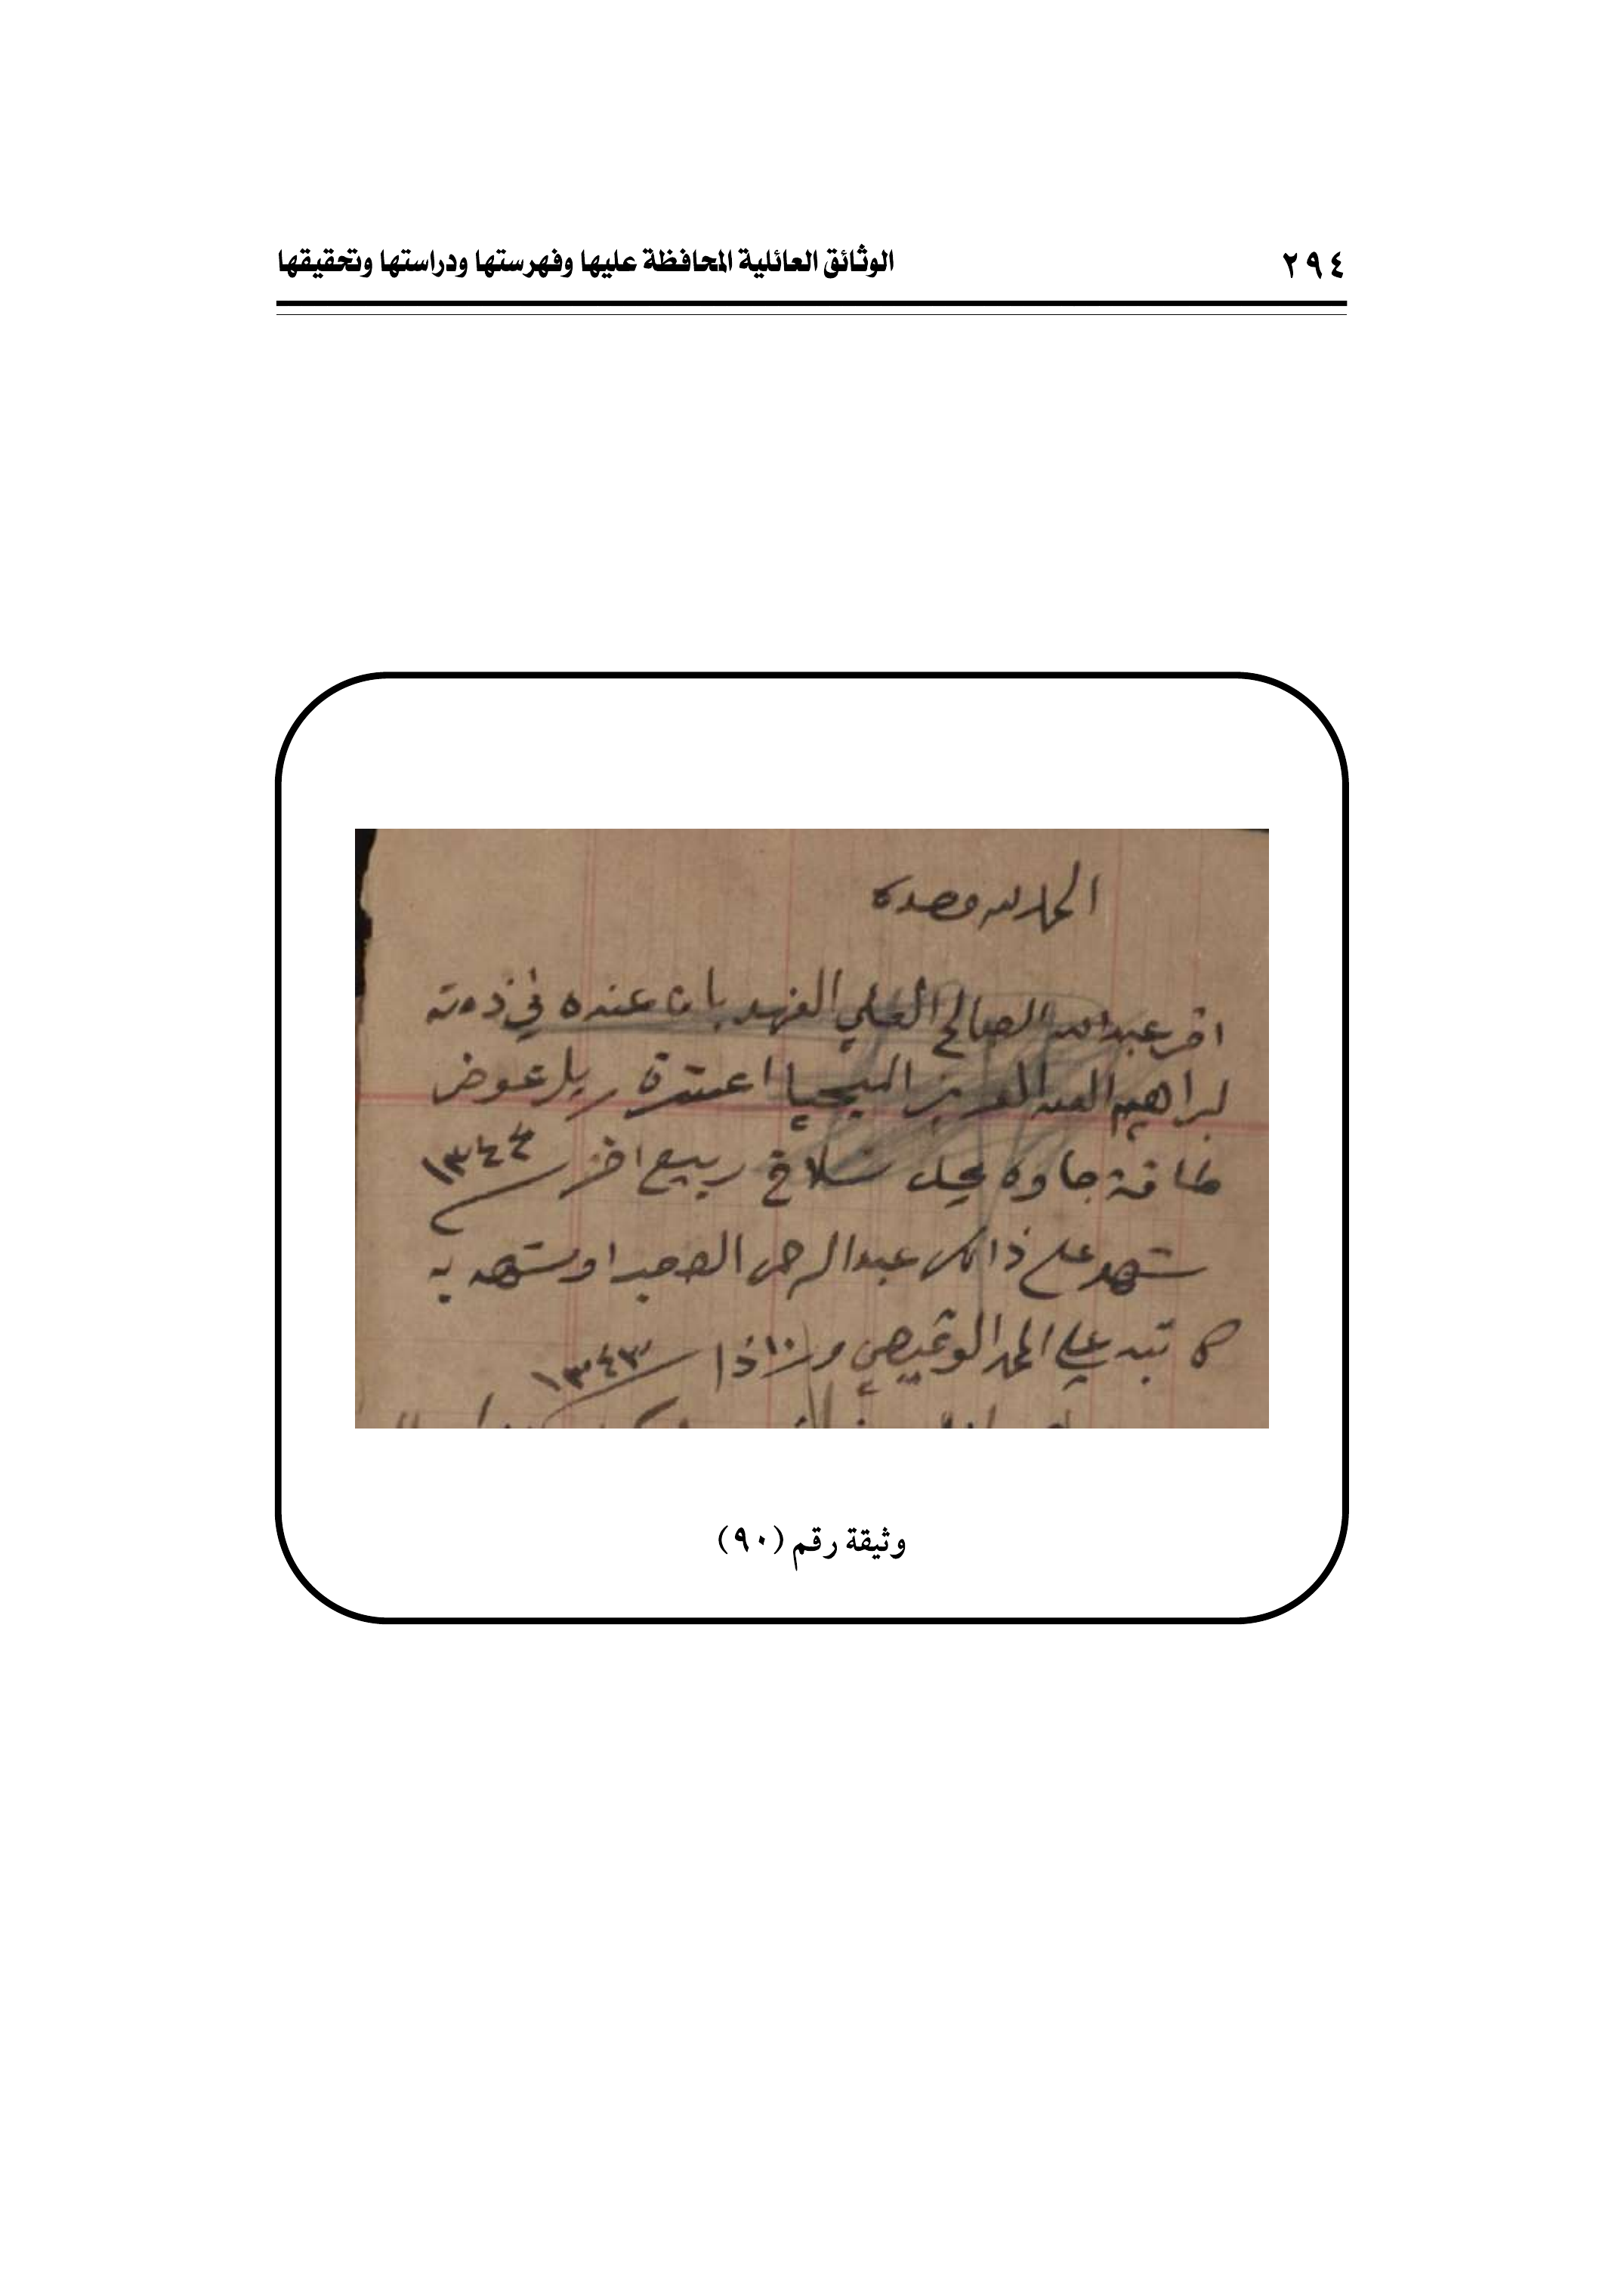 ٢٩٤
الوثائق العائلية المحافظة عليها وفهرستها ودراستها وتحقيقها
الحمد لله وحده
اقر عبدالله الصالح العلي الفهد بان عنده في ذمته
لبراهيم العبدالعزيز اليحيا اعشرة ريل عوض
طاقة جاوه يحل نسلاخ ربيع اخر ١٣٤٤
شهد على ذالك عبدالرحمن و شهد به
كاتبه علي المحمد الوقيصي و ١٠ ذا ١٣٤٣
وثيقة رقم (٩٠)